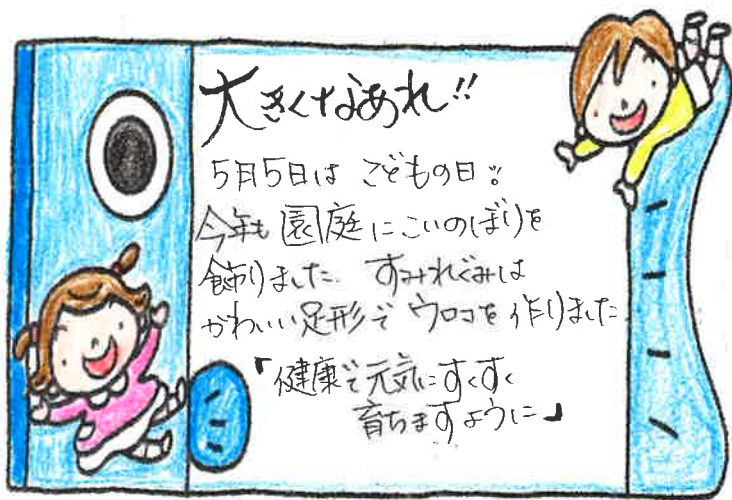 大きくなあれ!!
5月5日は こどもの日!!
今年も 園庭にこいのぼりを
飾りました。すみれぐみは
かわいい足形で ウロコを 作りました
「健康で元気にすくすく
育ちますように」